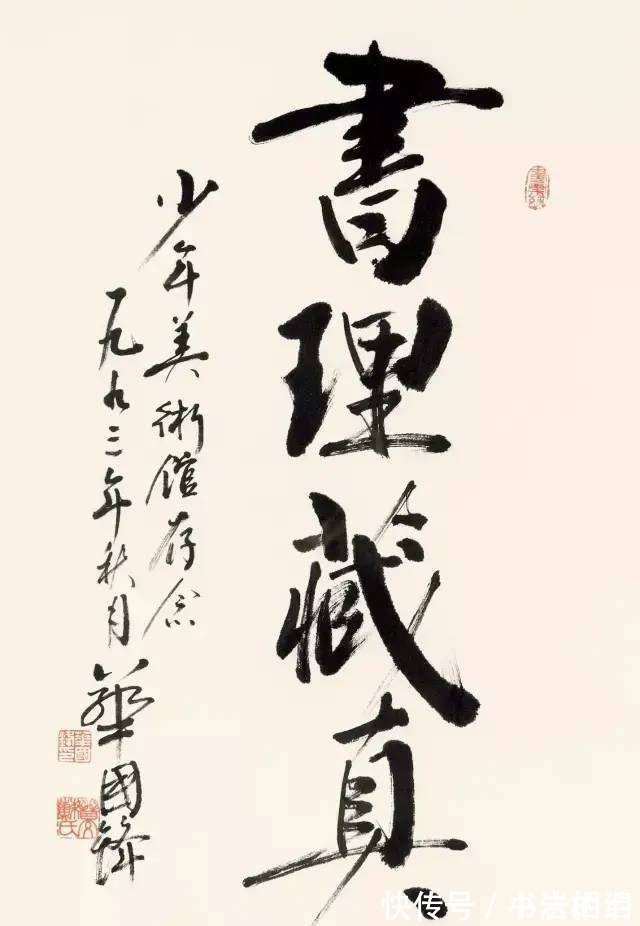 書理藏真
少年美術館存念
一九九三年秋月
華國鋒
快传号／